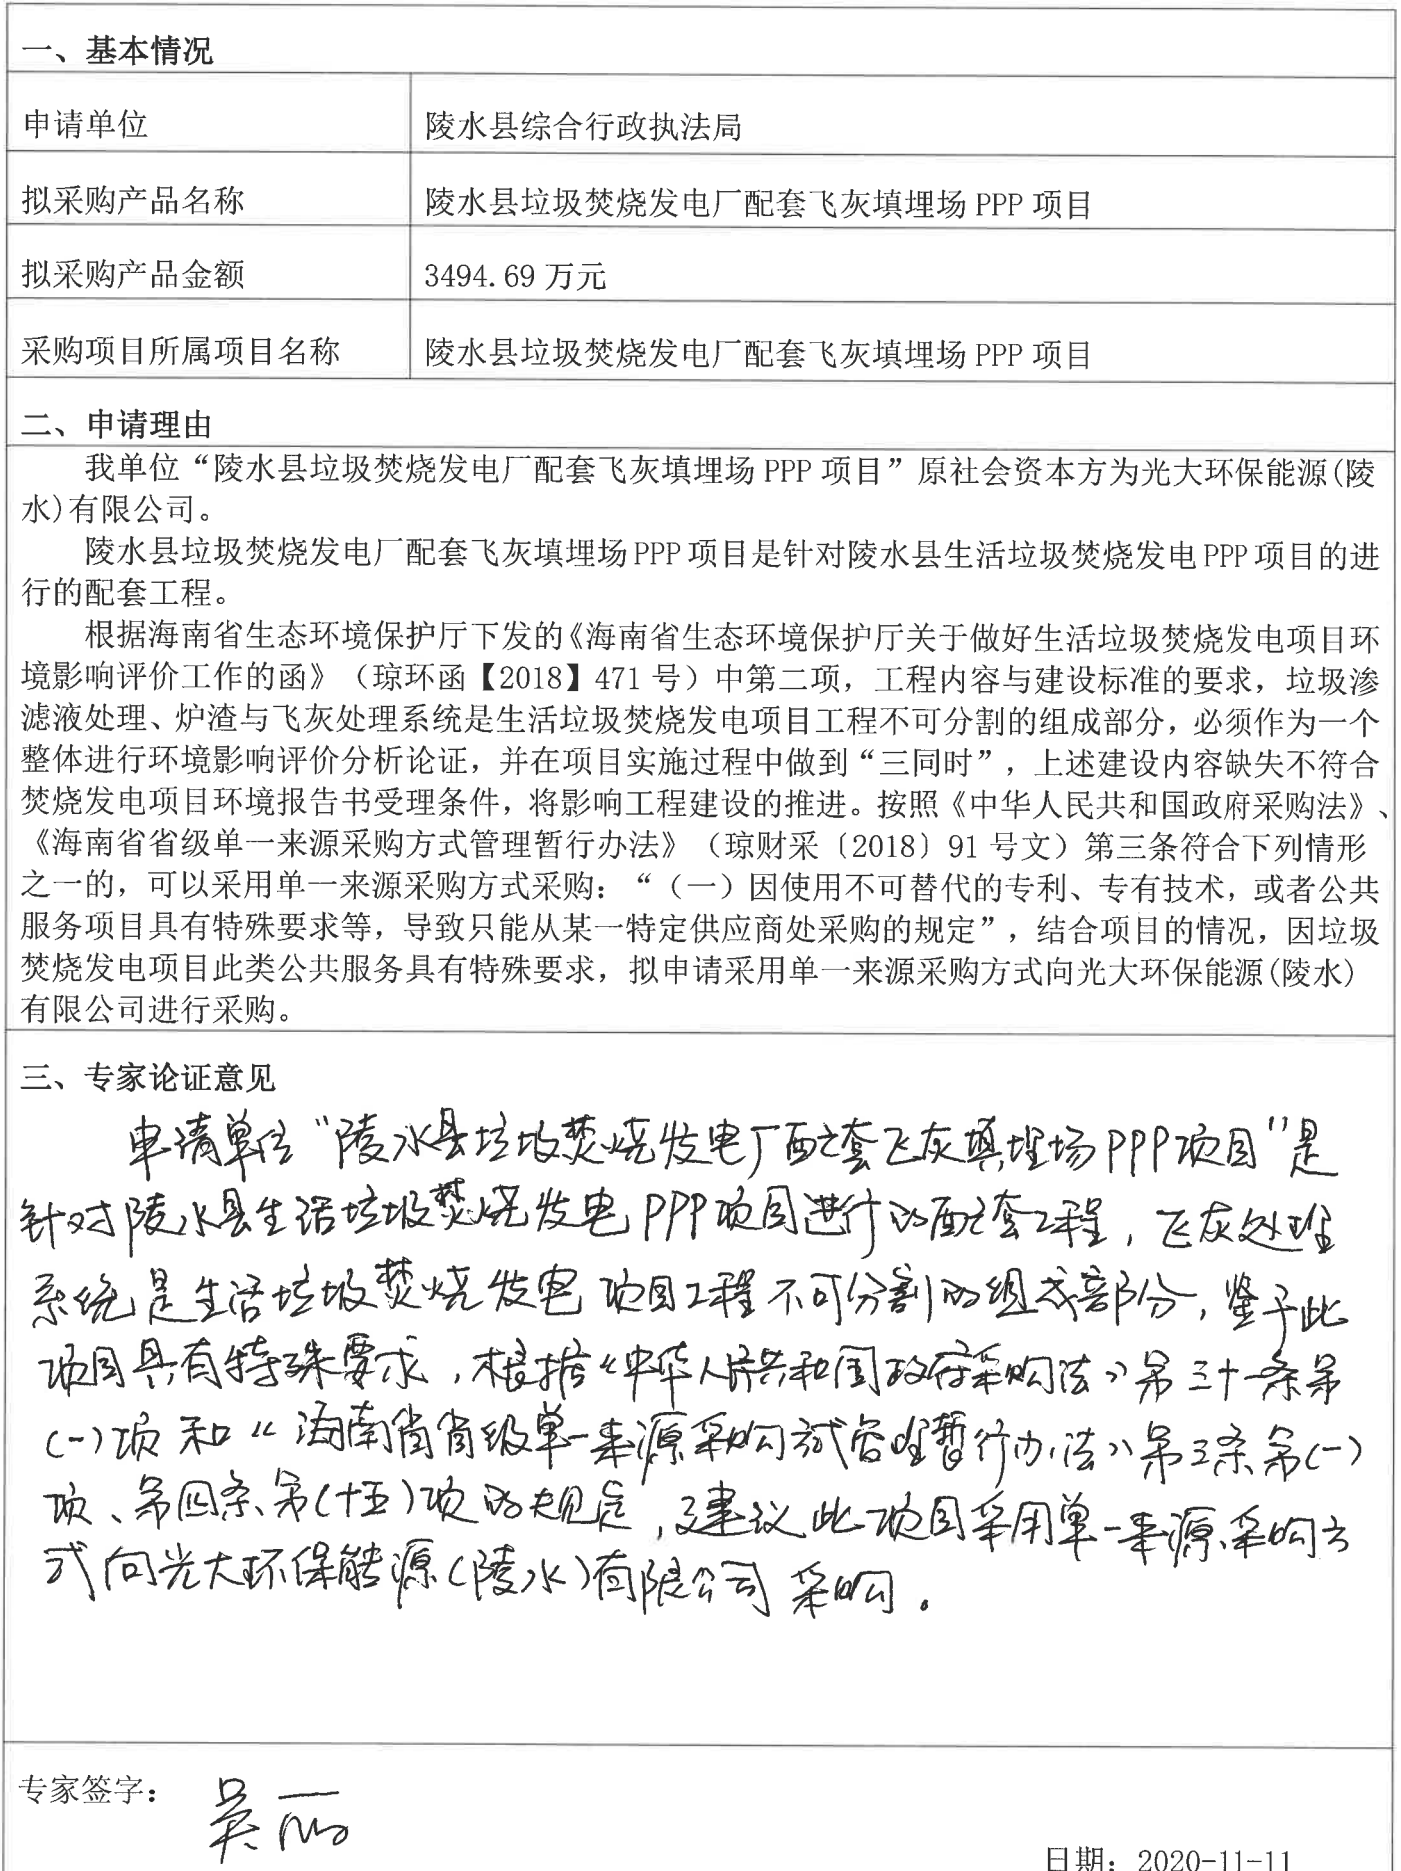 一、基本情况
申请单位 陵水县综合行政执法局
拟采购产品名称 陵水县垃圾焚烧发电厂配套飞灰填埋场 PPP 项目
拟采购产品金额 3494.69 万元
采购项目所属项目名称 陵水县垃圾焚烧发电厂配套飞灰填埋场 PPP 项目
二、申请理由
我单位“陵水县垃圾焚烧发电厂配套飞灰填埋场 PPP 项目”原社会资本方为光大环保能源(陵
水)有限公司。
陵水县垃圾焚烧发电厂配套飞灰填埋场 PPP 项目是针对陵水县生活垃圾焚烧发电 PPP 项目的进
行的配套工程。
根据海南省生态环境保护厅下发的《海南省生态环境保护厅关于做好生活垃圾焚烧发电项目环
境影响评价工作的函》（琼环函【2018】471 号）中第二项，工程内容与建设标准的要求，垃圾渗
滤液处理、炉渣与飞灰处理系统是生活垃圾焚烧发电项目工程不可分割的组成部分，必须作为一个
整体进行环境影响评价分析论证，并在项目实施过程中做到“三同时”，上述建设内容缺失不符合
焚烧发电项目环境报告书受理条件，将影响工程建设的推进。按照《中华人民共和国政府采购法》、
《海南省省级单一来源采购方式管理暂行办法》（琼财采〔2018〕91 号文）第三条符合下列情形
之一的，可以采用单一来源采购方式采购：“（一）因使用不可替代的专利、专有技术，或者公共
服务项目具有特殊要求等，导致只能从某一特定供应商处采购的规定”，结合项目的情况，因垃圾
焚烧发电项目此类公共服务具有特殊要求，拟申请采用单一来源采购方式向光大环保能源(陵水)
有限公司进行采购。
三、专家论证意见
申请单位“陵水县垃圾焚烧发电厂配套飞灰填埋场PPP项目”是
针对陵水县生活垃圾焚烧发电PPP项目进行的配套工程，飞灰处理
系统是生活垃圾焚烧发电项目工程不可分割的组成部分，鉴于此
项目具有特殊要求，根据《中华人民共和国政府采购法》第三十一条第
(一)项和《海南省省级单一来源采购方式管理暂行办法》第三条第(一)
项、第四条第(十五)项的规定，建议此项目采用单一来源采购方
式向光大环保能源(陵水)有限公司采购。
专家签字： 吴丽
日期：2020-11-11